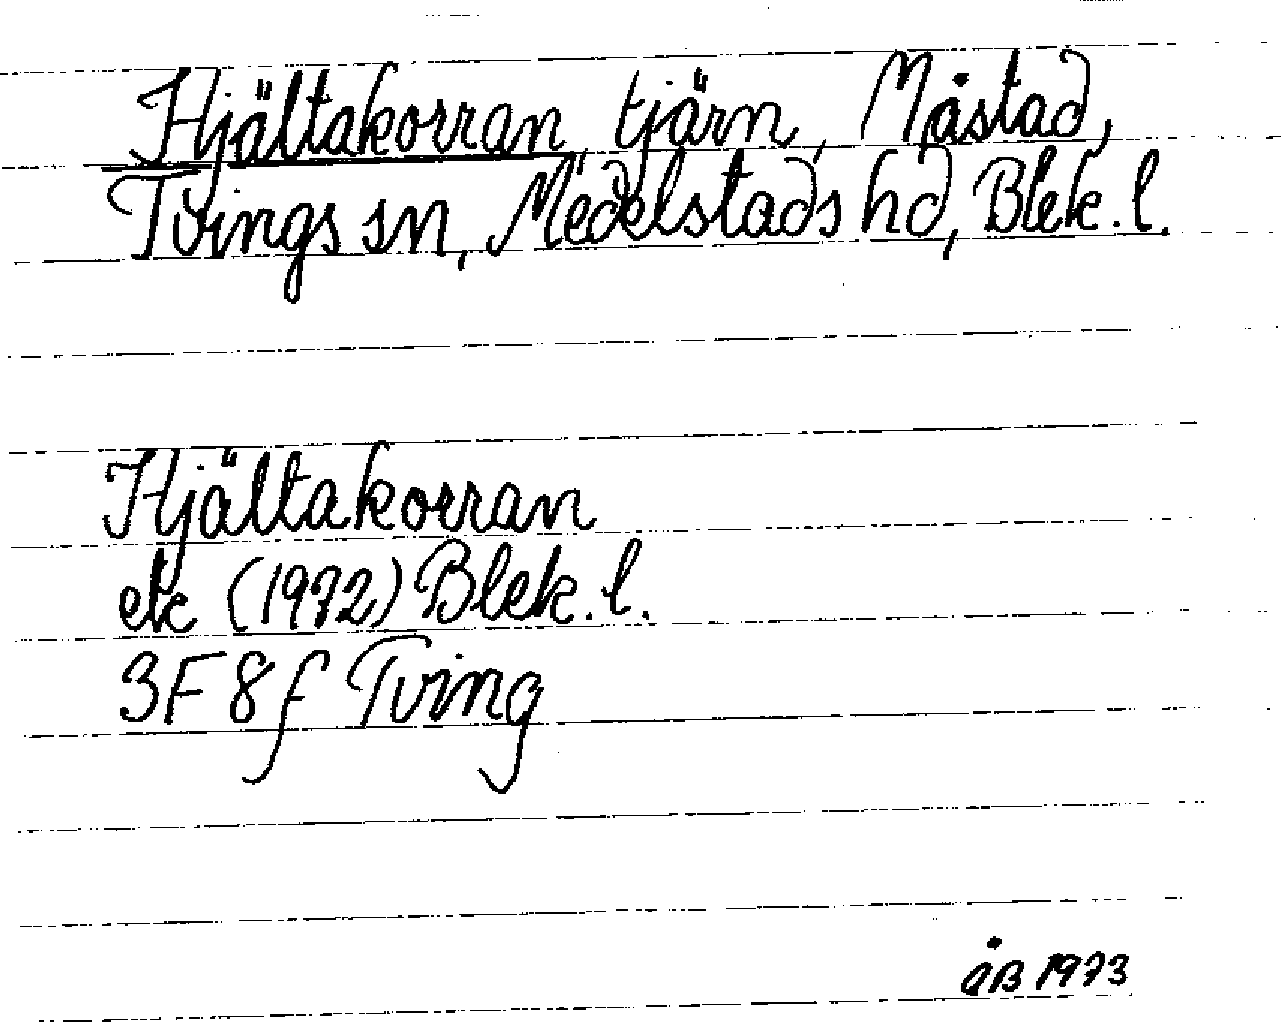 Hjältakorran, tjärn, Måstad,
Tvings sn, Medelstads hd, Blek. l.
Hjältakorran
ek (1972) Blek. l.
3F 8f Tving
åB 1973